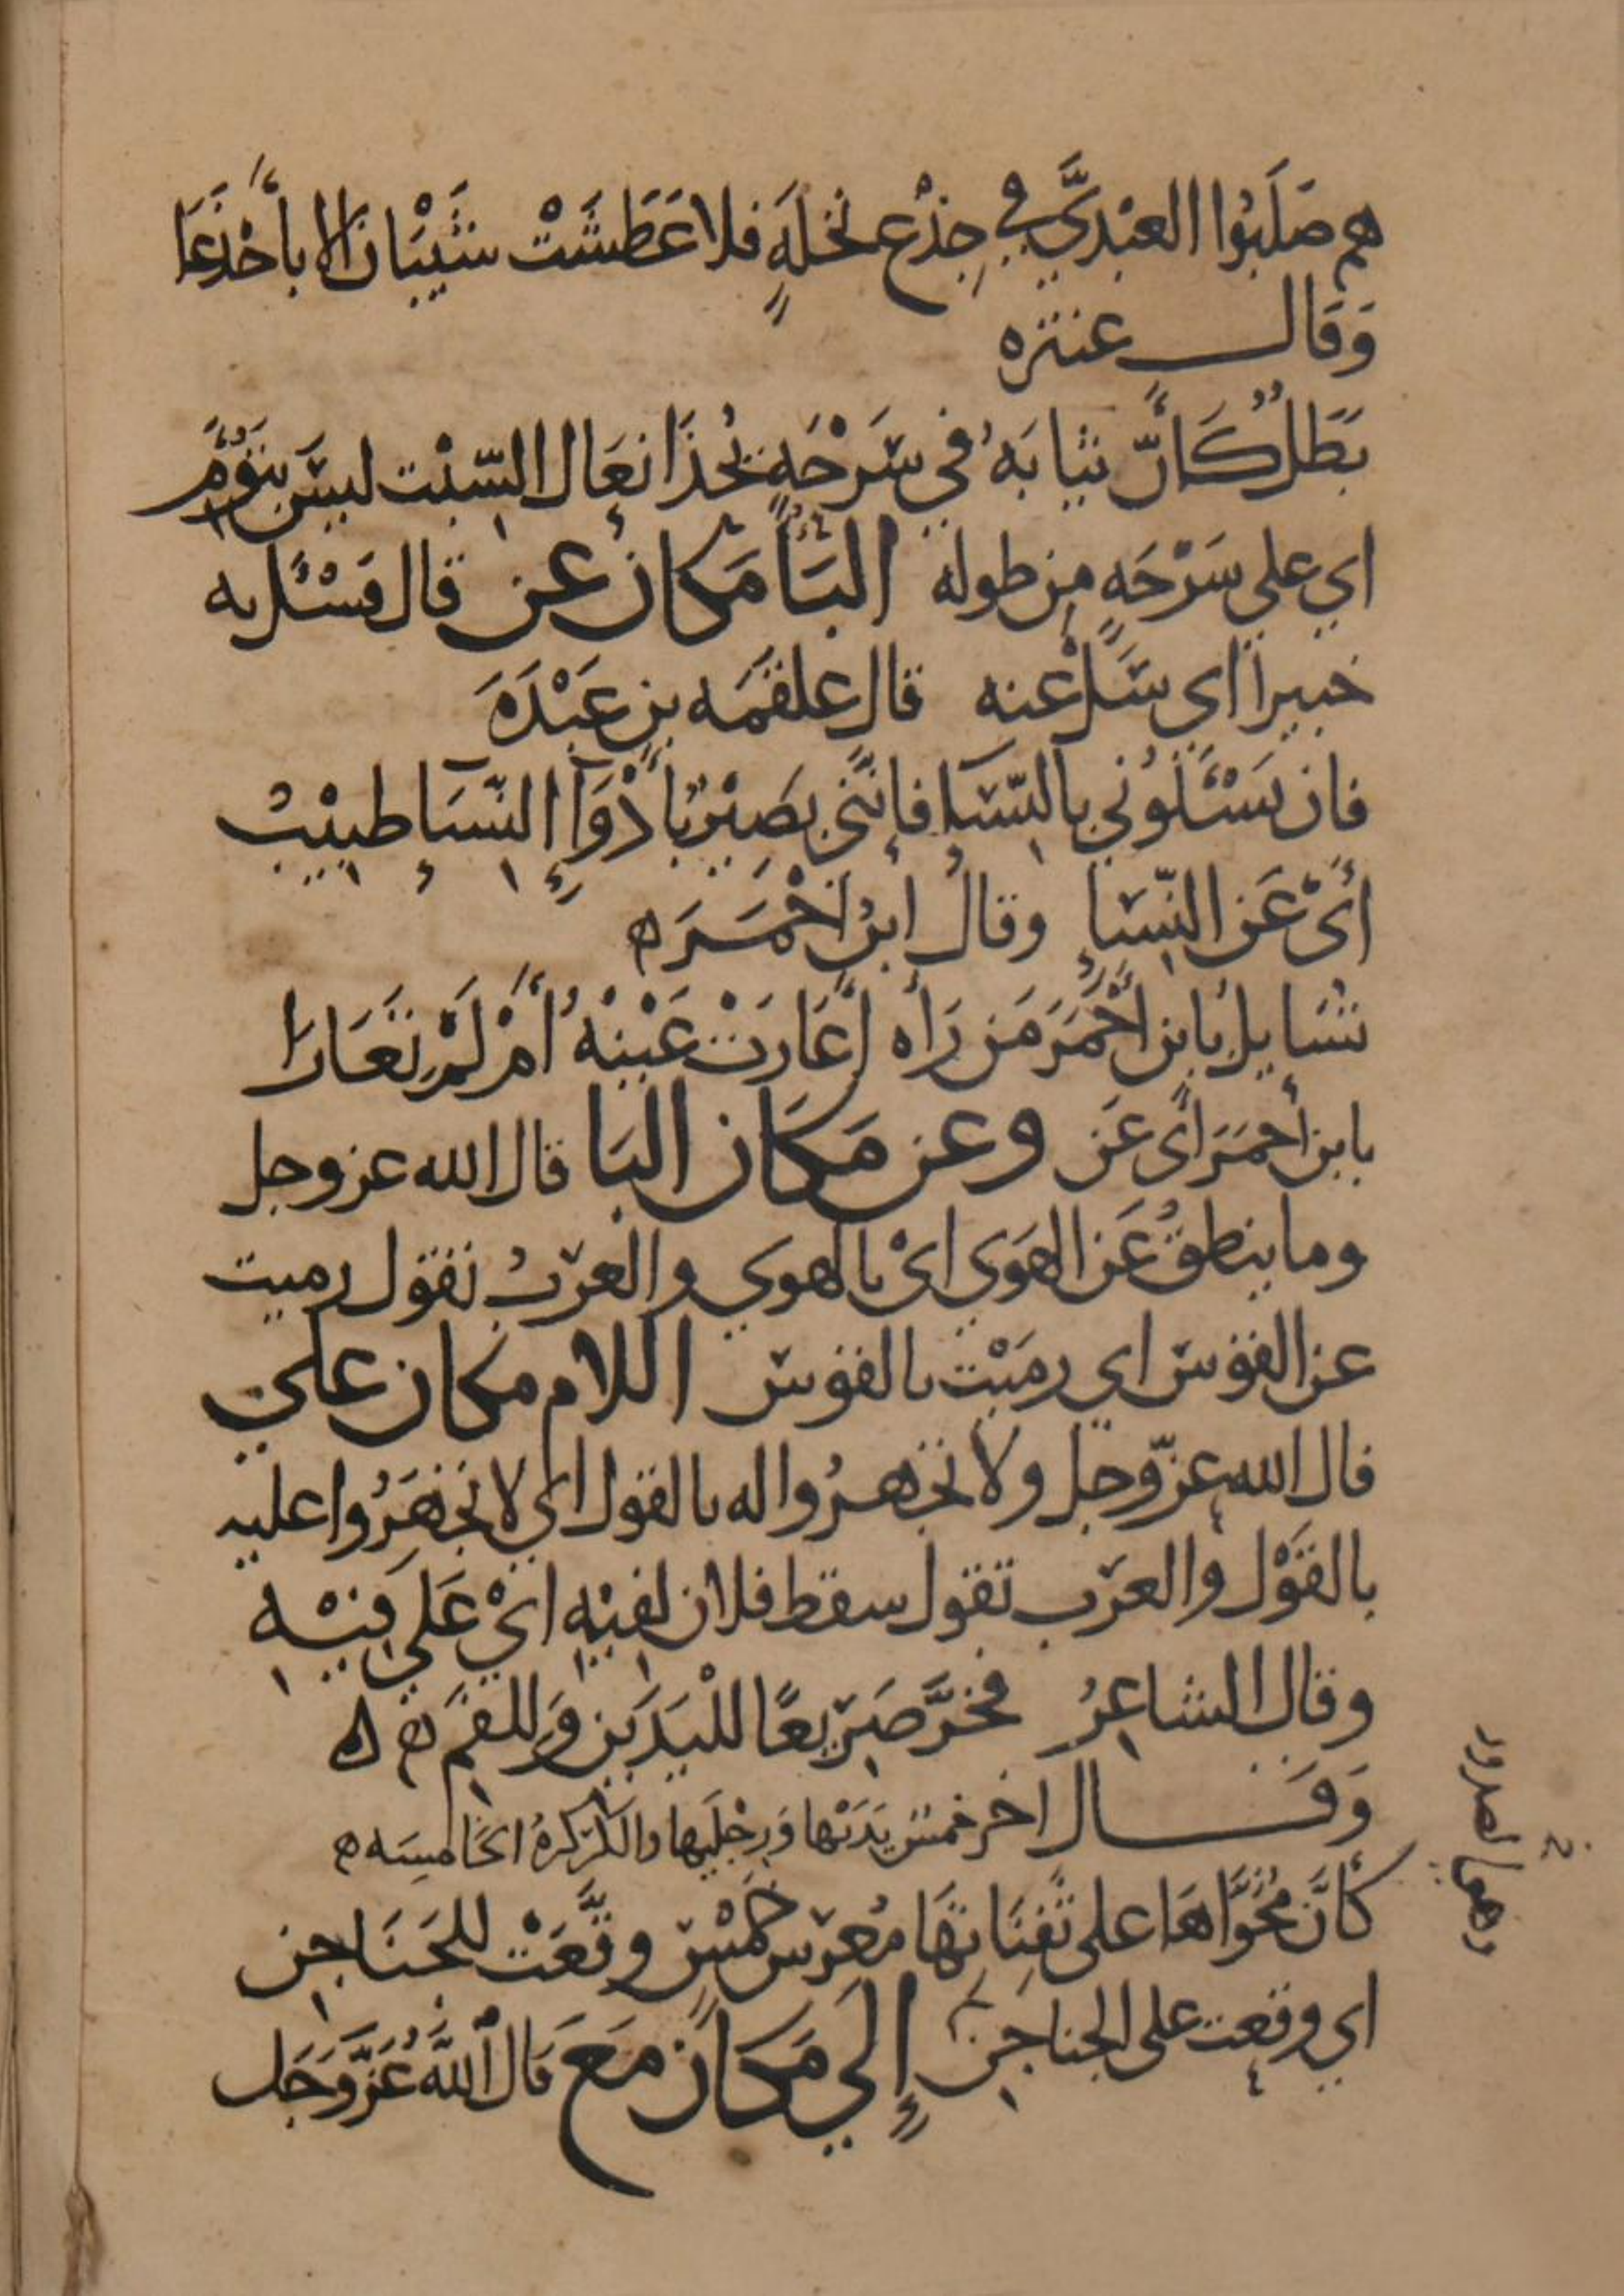 هم صَلَبُوا العَبْدِيَّ في جِذْعِ نخلَةٍ فلا عَطَشَتْ شَيْبَانُ الا بأَجْدَعَا
وَقَال عنتره
بَطَلٌ كَأَنَّ ثيابَهُ في سَرْحَةٍ يُحْذَا نِعَالَ السِّبْتِ ليسَ بِتَوْءَمِ
اي على سَرْحَةٍ من طوله البَاءُ مَكَانَ عن قال فَسْئَل به
خبيرًا اي سَلْ عنه قال علقمَه بن عَبْدَةَ
فان تَسْئَلُوني بالنّسَاءِ فإنَّني بَصِيْرٌ بأَدْوَاءِ النّسَاءِ طبِيْبُ
أَىْ عَن النّسَاءِ وقال ابنُ احْمَرَ ه
تُسَايِلُ بابن أَحْمَرَ مَن رَأه أَعَارَتْ عَيْنُهُ أَمْ لَمْ تَعَارَا
بابن أحمَرَ أى عَن وعن مَكَان البَا قال الله عز وجل
وما ينطقُ عَن الهَوَي اىْ بالهوي والعَرَبُ تقول رميت
عن القوس اي رمَيْت بالقوس اللام مكان على
قال الله عزّ وجل ولا تجهرُوا له بالقول اي لا تجْهَرُوا عليه
بالقَوْل والعَرَب تقول سقط فلان لِفِيْهِ ايْ عَلي فِيْهِ
وقال الشاعِرُ فخرَّ صَرِيعًا للْيَدَيْن وَللفَم ه ه
وَقَال اخر خمس يَدَيْها وَرِجْلَيها والكَرْكرةُ الخَامِسَه ه
كأَنَّ مُخَوَّاهَا على ثَفِنَاتهَا مُعَرَّس خَمْسٍ وقَّعَتْ للجَنَاجِن
اي وقعت على الجناجن إِلَي مَكَانَ مَعَ قَالَ اللَّهُ عَزَّ وَجَل
وهي الصدور